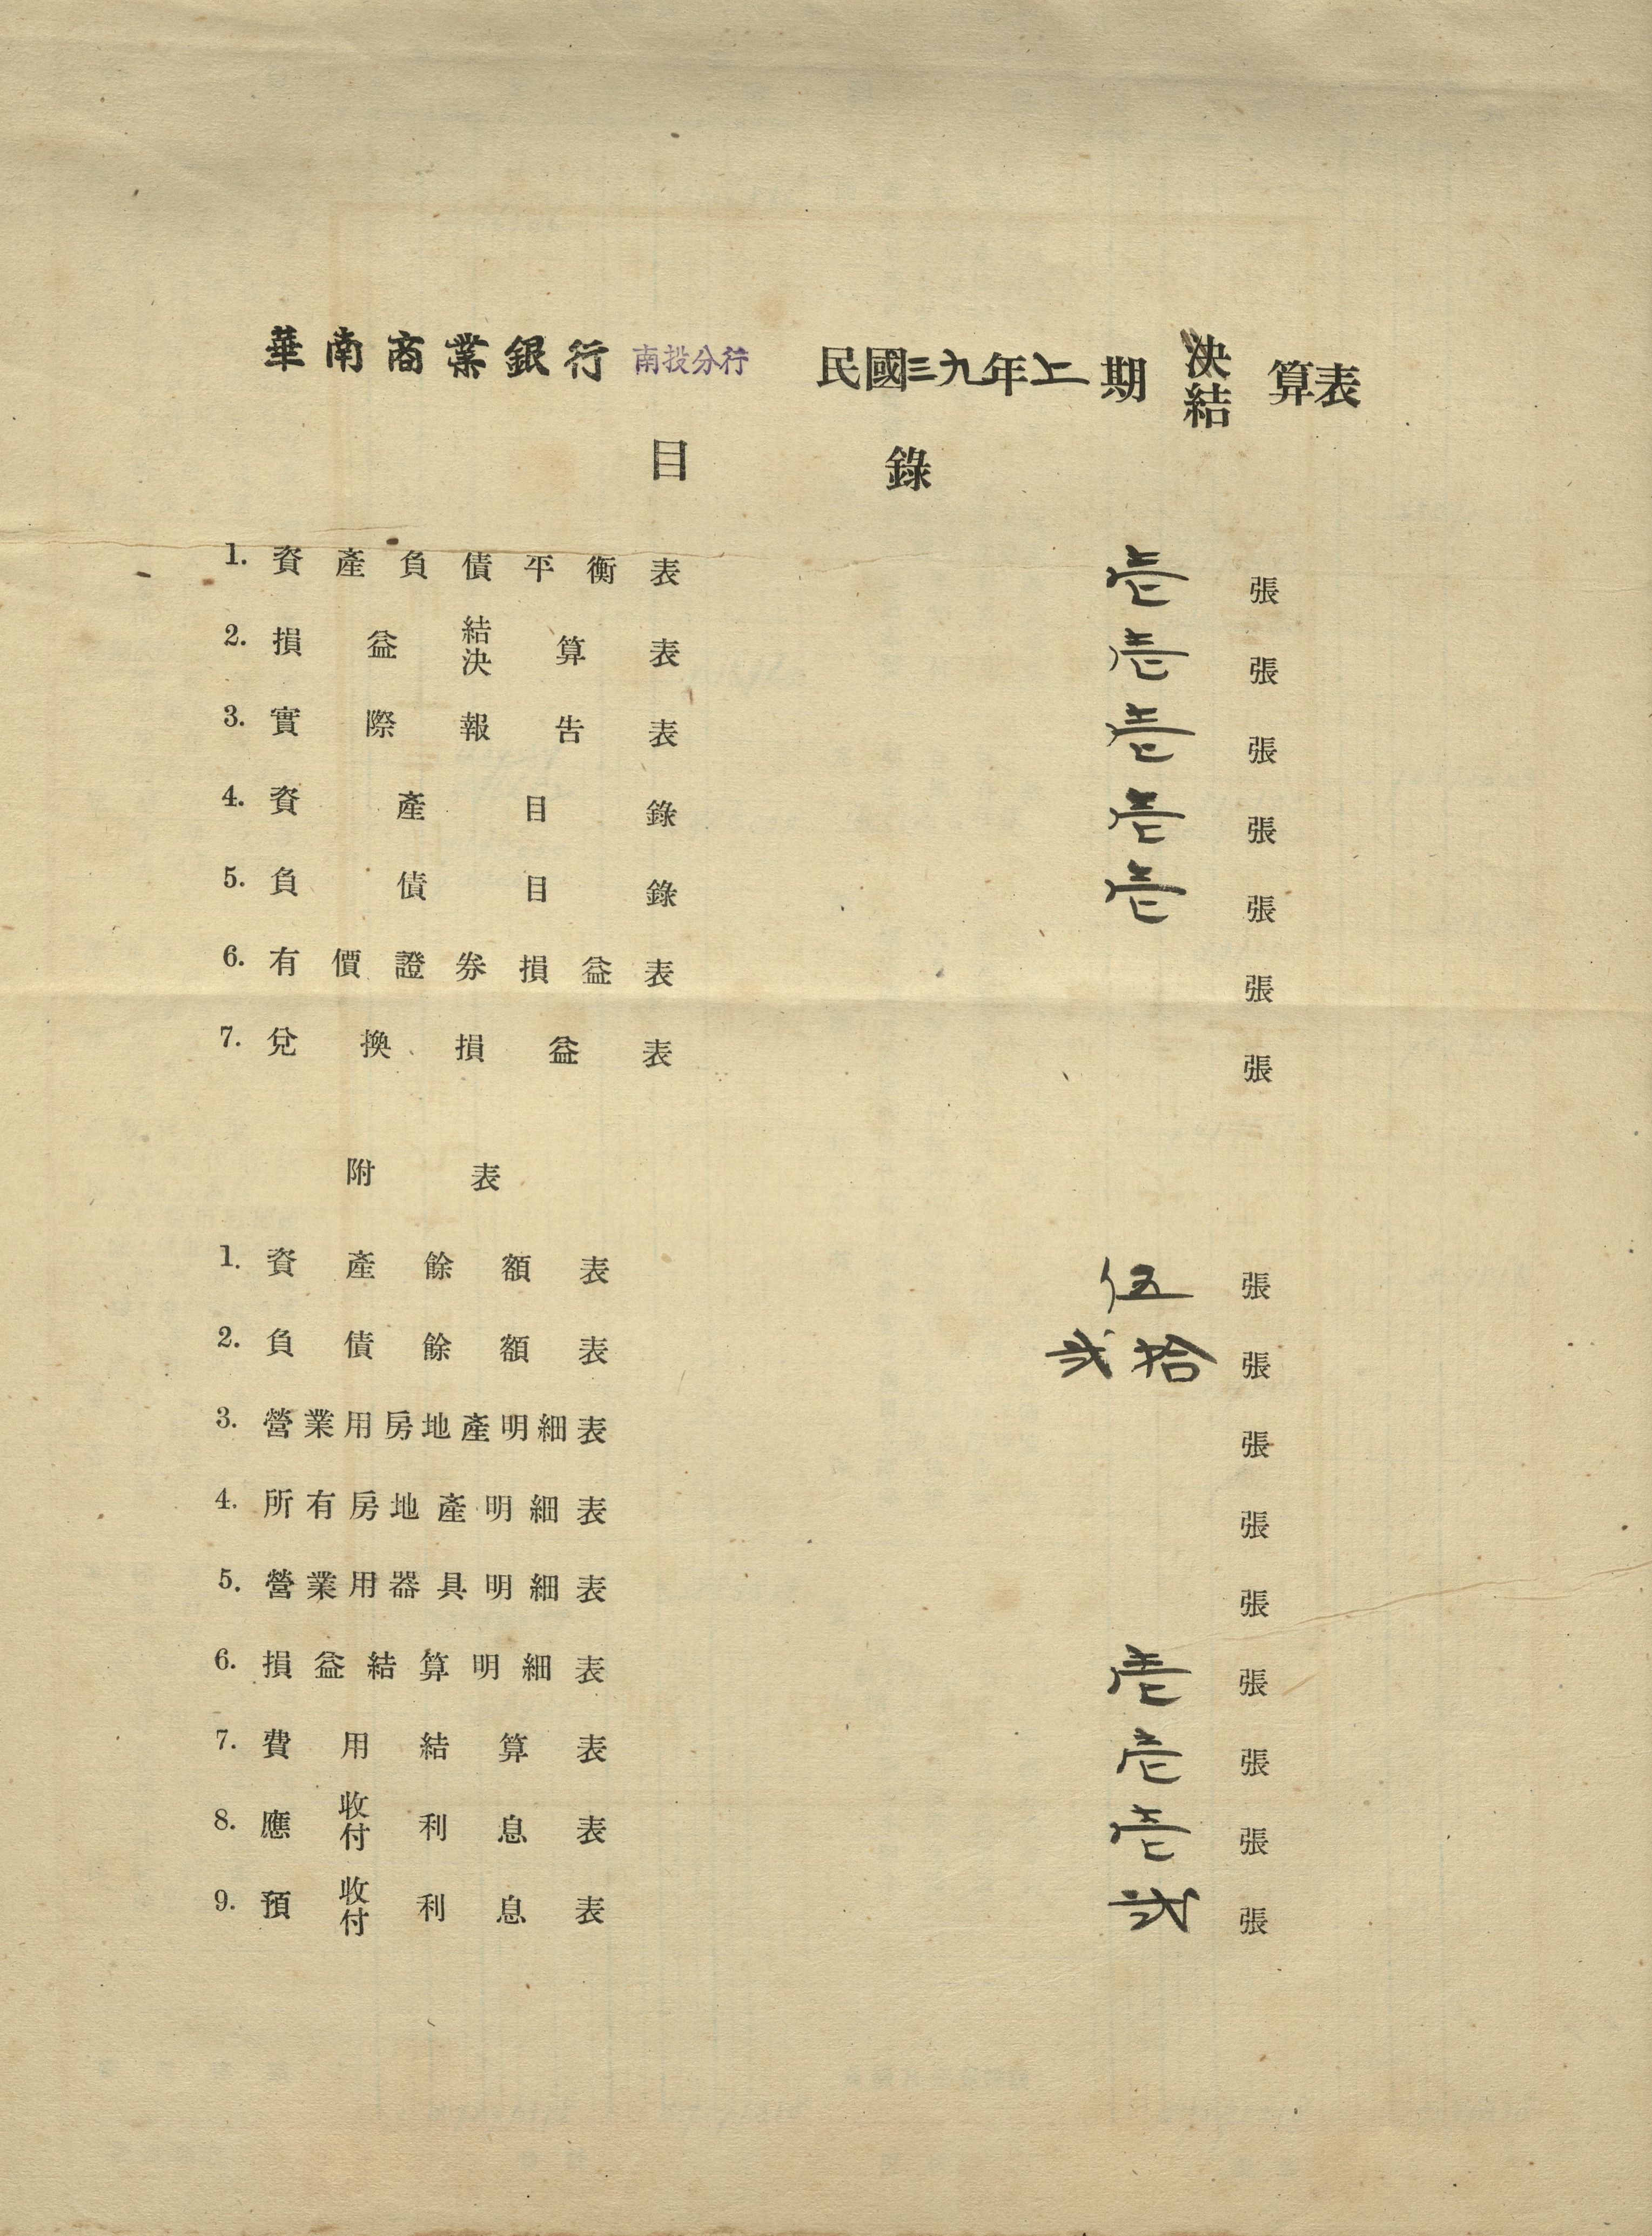 華南商業銀行 南投分行 民國三九年上期 決結 算表
目錄
1. 資產負債平衡表 壱張
2. 損益結決算表 壱張
3. 實際報告表 壱張
4. 資產目錄 壱張
5. 負債目錄 壱張
6. 有價證券損益表 張
7. 兌換損益表 張
附表
1. 資產餘額表 伍張
2. 負債餘額表 弍拾張
3. 營業用房地產明細表 張
4. 所有房地產明細表 張
5. 營業用器具明細表 張
6. 損益結算明細表 壱張
7. 費用結算表 壱張
8. 應收付利息表 壱張
9. 預收付利息表 弍張